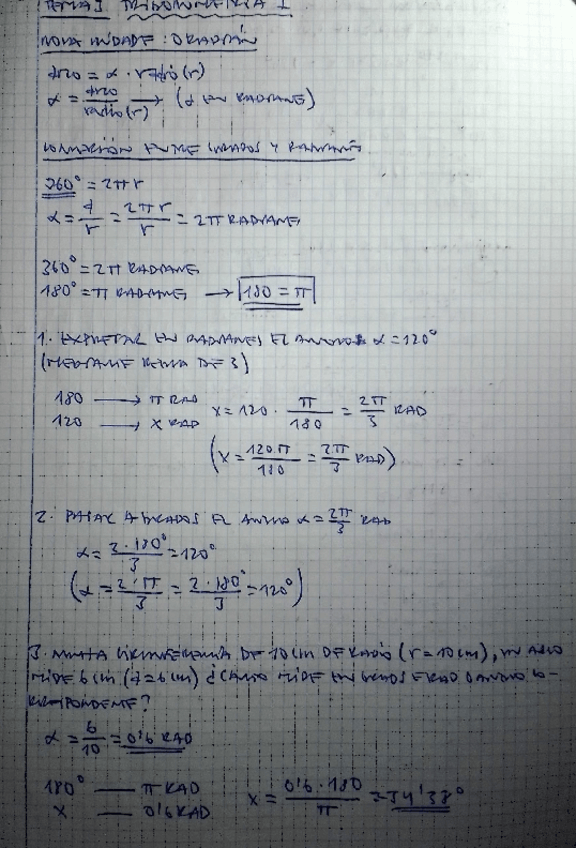 TEMA I TRIGONOMETRÍA I
NOVA UNIDADE: O RADIÁN
Arco = α · radio (r)
α = arco / radio (r) → (α en RADIANES)
CONVERSIÓN ENTRE GRADOS Y RADIANES
360° = 2πr
α = a/r = 2πr/r = 2π RADIANES
360° = 2π RADIANES
180° = π RADIANES → 180 = π
1. EXPRESAR EN RADIANES EL ÁNGULO α = 120°
(MEDIANTE REGLA DE 3)
180 → π RAD
120 → X RAD
X = 120 · π/180 = 2π/3 RAD
(X = 120π/180 = 2π/3 RAD)
2. PASAR A GRADOS EL ÁNGULO α = 2π/3 RAD
α = 2·180°/3 = 120°
(α = 2·π/3 = 2·180°/3 = 120°)
3. NUNHA CIRCUNFERENCIA DE 10 cm DE RADIO (r = 10 cm), UN ARCO
MIDE 6 cm (a = 6 cm) ¿CANTO MIDE EN GRADOS E RAD O ÁNGULO CO-
RRESPONDENTE?
α = 6/10 = 0'6 RAD
180° — π RAD
X — 0'6 RAD
X = 0'6·180/π = 34'38°